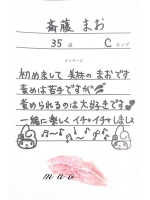 斎藤 まお
35 歳 C カップ
メッセージ
初めまして 美妹の まおです
責めは苦手ですが
責められるのは大好きです
一緒に楽しくイチャイチャしましょ
mao